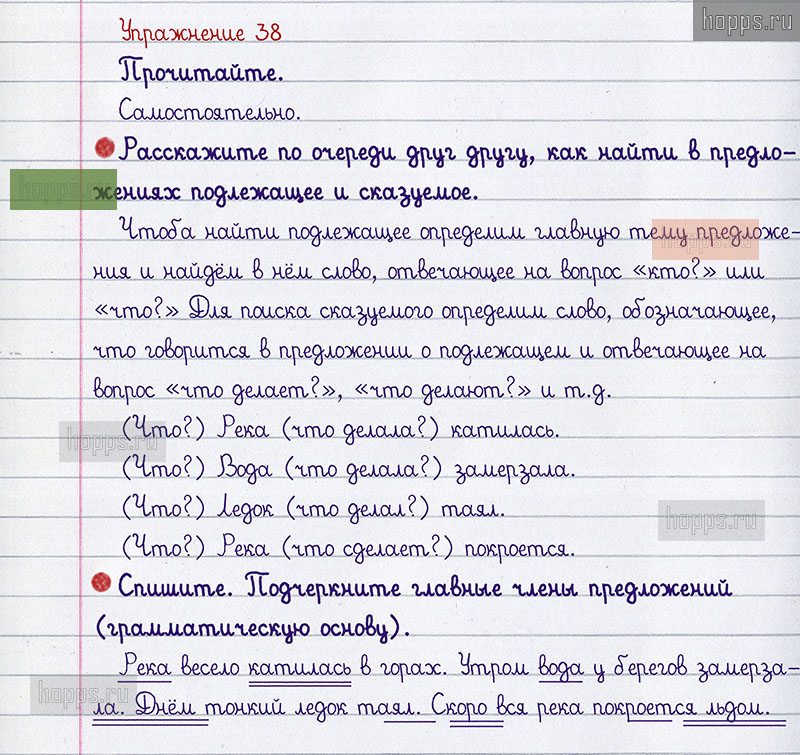 hopps.ru
Упражнение 38
Прочитайте.
Самостоятельно.
Расскажите по очереди друг другу, как найти в предло-
hopps.ru
жениях подлежащее и сказуемое.
Чтоба найти подлежащее определим главную тему предложе-
hopps.ru
ния и найдём в нём слово, отвечающее на вопрос «кто?» или
«что?» Для поиска сказуемого определим слово, обозначающее,
что говорится в предложении о подлежащем и отвечающее на
вопрос «что делает?», «что делают?» и т.д.
(Что?) Река (что делала?) катилась.
hopps.ru
(Что?) Вода (что делала?) замерзала.
(Что?) Ледок (что делал?) таял.
hopps.ru
(Что?) Река (что сделает?) покроется.
Спишите. Подчеркните главные члены предложений
(грамматическую основу).
Река весело катилась в горах. Утром вода у берегов замерза-
hopps.ru
ла. Днём тонкий ледок таял. Скоро вся река покроется льдом.